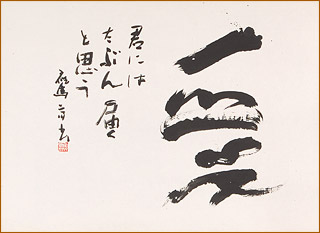 愛
君には
たぶん届く
と思う